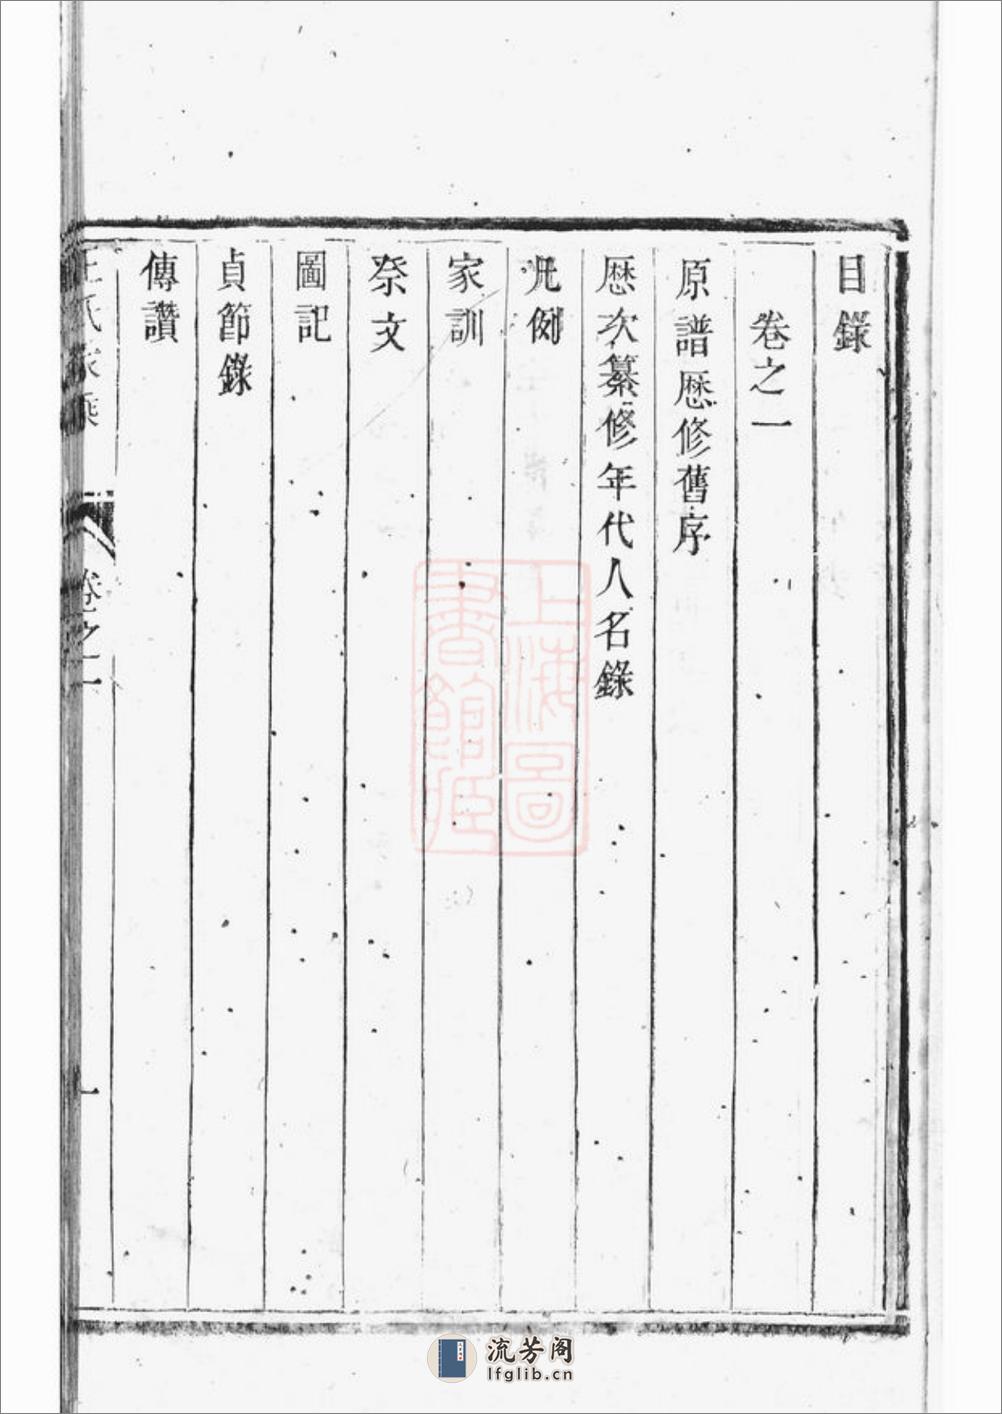 目錄
卷之一
原譜歷修舊序
歷次纂修年代人名錄
凡例
家訓
祭文
圖記
貞節錄
傳讚
王氏家乘
卷之一
一
上海圖書館藏
流芳阁
lfglib.cn